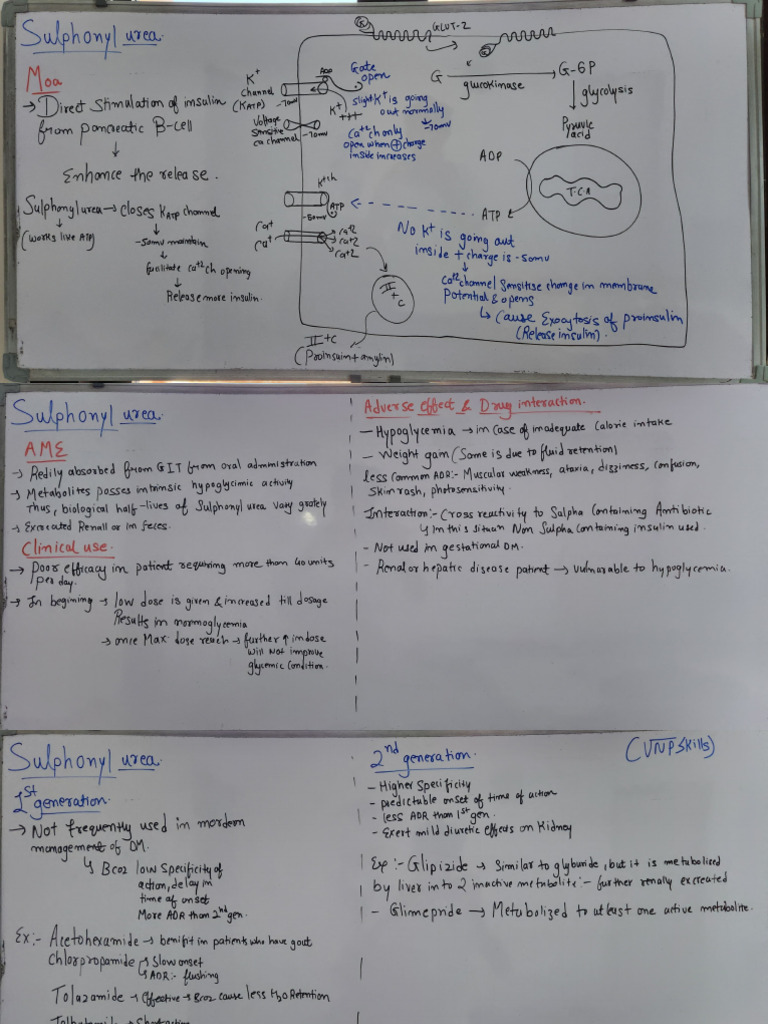 Sulphonyl urea.
Moa
→ Direct Stimulation of insulin
from pancreatic B-cell
↓
Enhance the release.
Sulphonylurea → closes KATP channel
(works like ATP)
-50mv maintain
↓
facilitate ca+2 ch opening
↓
Release more insulin.
GLUT-2
K+
channel
(KATP)
-70mv
ADP
Gate
open
K+
+++
slight K+ is going
out normally
-70mv
Voltage
sensitive
ca channel
-70mv
ca++ ch only
open when + charge
inside increases
G
glucokinase
G-6P
↓ glycolysis
Pyruvic
acid
T.C.A
ADP
ATP
K+ch
ATP
-50mv
Ca+
Ca+
Ca+2
Ca+2
Ca+2
No K+ is going out
inside + charge is -50mv
↓
Ca+2 channel Sensitise change in membrane
Potential & opens
↳ Cause Exocytosis of proinsulin
(Release insulin).
II
+
C
II+C
(Proinsuin+amylin)
Sulphonyl urea.
AME
→ Redily absorbed from GIT from oral administration
→ Metabolites posses intrinsic hypoglycimic activity
Thus, biological half-lives of Sulphonyl urea vary grately
→ Excreated Renall or in feces.
Clinical use.
→ Poor efficacy in patient requiring more than 40 units
/per day.
→ In begining → low dose is given & increased till dosage
Results in normoglycemia
→ once Max. dose reach → further ↑ in dose
will Not improve
glycemic condition.
Adverse effect & Drug interaction.
– Hypoglycemia → in case of inadequate Calorie intake
– Weight gain (Some is due to fluid retention)
less common ADR:- Muscular weakness, ataxia, dizziness, confusion,
Skin rash, photosensitivity.
Interaction:- Cross reactivity to Salpha Containing Antibiotic
↳ in this situan Non Sulpha containing insulin used.
– Not used in gestational DM.
– Renal or hepatic disease patient → vulnarable to hypoglycemia.
Sulphonyl urea.
1st generation.
→ Not frequently used in mordern
management of DM.
↳ Bcoz low Specificity of
action, delay in
time of onset
More ADR than 2nd gen.
Ex:- Acetohexamide → benifit in patients who have gout
Chlorpropamide → Slow onset
→ ADR:- flushing
Tolazamide → Effective → Bcoz cause less H2O Retention
Tolbutamide → Short acting
2nd generation.
(VNPSkills)
– Higher Specificity
– predictable onset of time of action
– less ADR than 1st gen.
– Exert mild diuretic effects on Kidney
Ex:- Glipizide → Similar to glyburide, but it is metabolized
by liver into 2 inactive metabolite:- further renally excreated
– Glimepride → Metabolized to atleast one active metabolite.